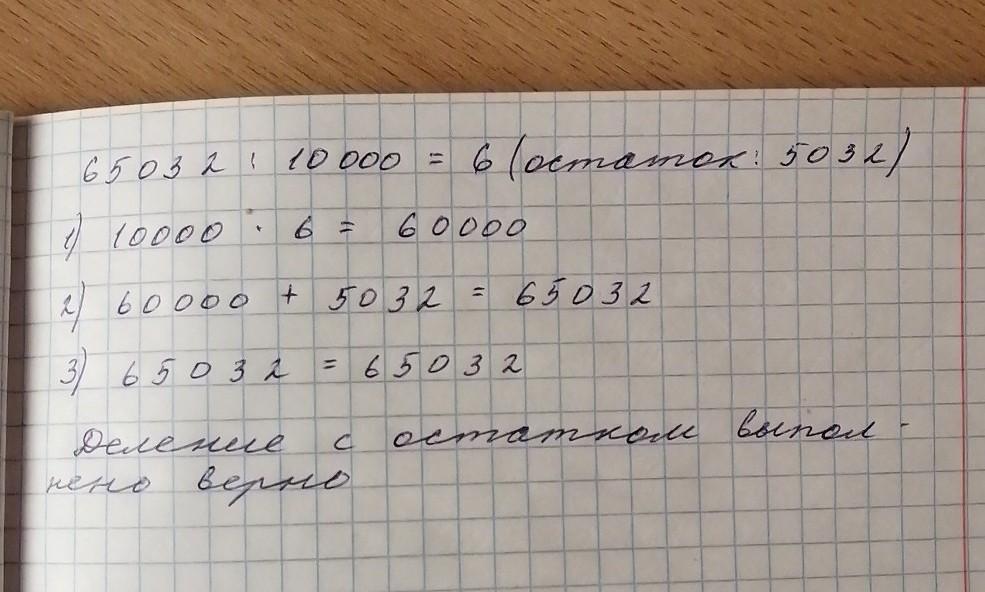 65032 : 10000 = 6 (остаток: 5032)
1) 10000 · 6 = 60000
2) 60000 + 5032 = 65032
3) 65032 = 65032
Деление с остатком выпол-
нено верно